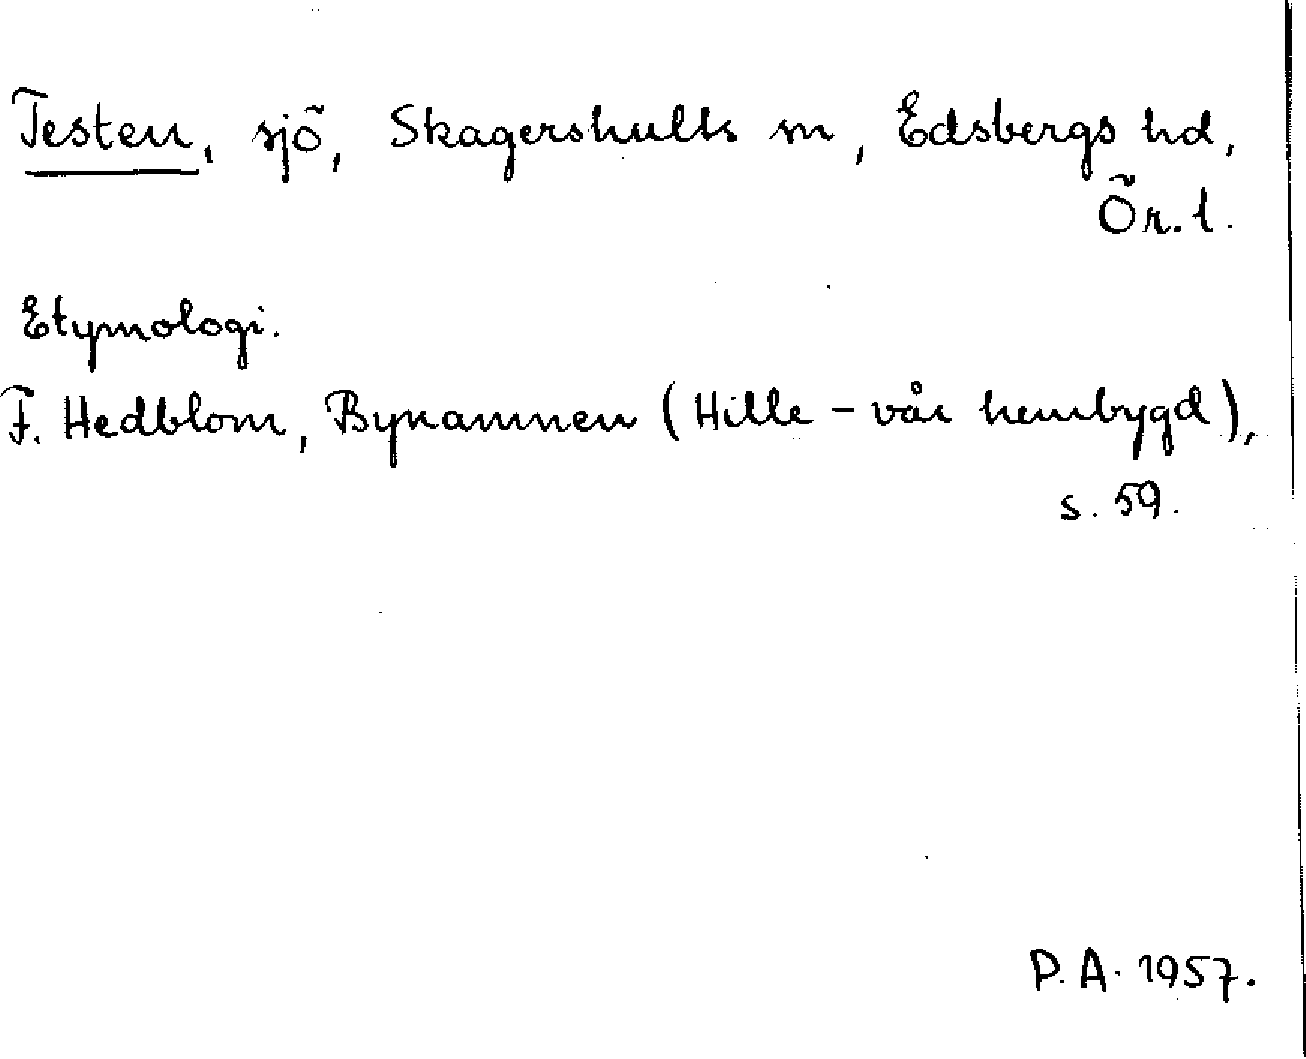 Testen, sjö, Skagershults sn, Edsbergs hd,
Ör. l.
Etymologi.
F. Hedblom, Bynamnen (Hille – vår hembygd),
s. 59.
P. A. 1957.